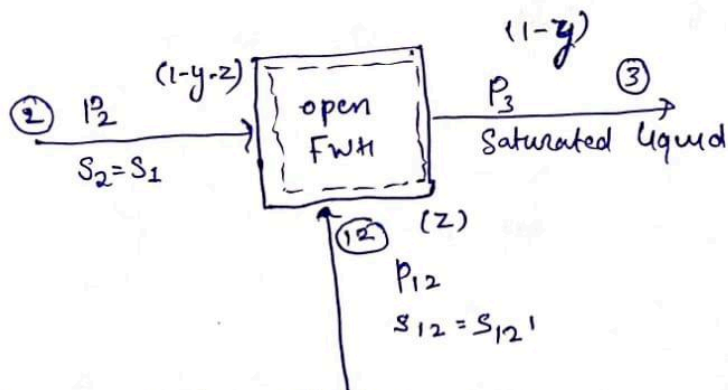 (1-y)
(1-y-z)
② P2
open
FWH
P3 ③
S2 = S1
Saturated liquid
⑫ (z)
P12
S12 = S12'